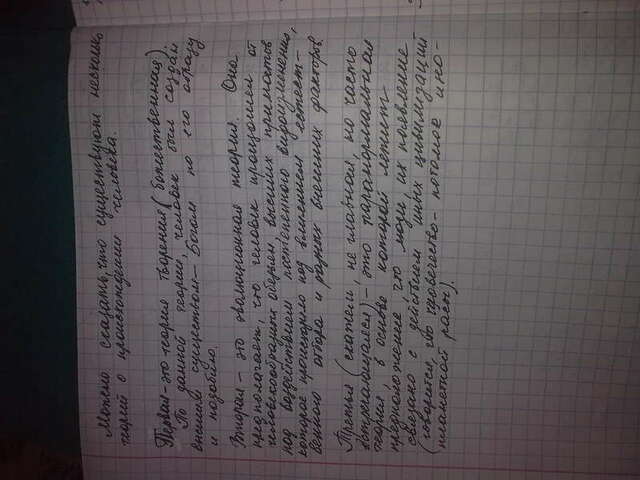 Можно сказать, что существуют несколько
теорий о происхождении человека.
Первая - это теория творения (божественная)
По данной теории, человек был создан
высшим существом - Богом по его образу
и подобию.
Вторая - это эволюционная теория. Она
предполагает, что человек произошел от
человекообразных обезьян, высших приматов
под воздействием постепенного видоизменения,
которое происходило под влиянием естест-
венного отбора и разных внешних факторов.
Третья (кстати, не главная, но часто
встречающаяся) - это паранормальная
теория, в основе которой лежит
предположение, что люди, их появление
связано с действием иных цивилизаций
(говорится, что человечество - потомок ино-
планетной расы).